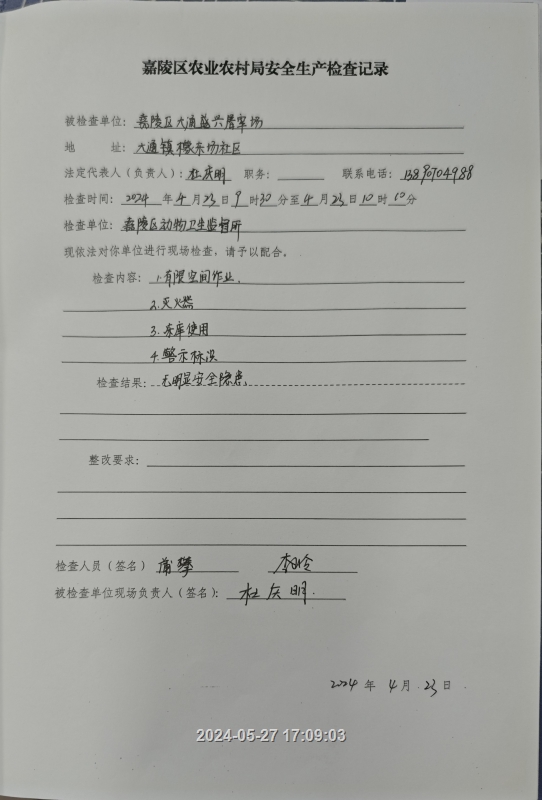 嘉陵区农业农村局安全生产检查记录
被检查单位：嘉陵区大通益兴屠宰场
地 址：大通镇檬东场社区
法定代表人（负责人）：杜庆明 职务： 联系电话：
检查时间：2024年4月23日9时30分至4月23日10时10分
检查单位：嘉陵区动物卫生监督所
现依法对你单位进行现场检查，请予以配合。
检查内容：1.有限空间作业.
2.灭火器
3.冻库使用
4.警示标识
检查结果：无明显安全隐患
整改要求：
检查人员（签名）蒲攀
被检查单位现场负责人（签名）：杜庆明.
2024年4月23日
2024-05-27 17:09:03